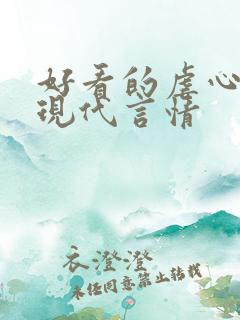 好看的虐心
現代言情
衣澄澄
未经同意禁止转载